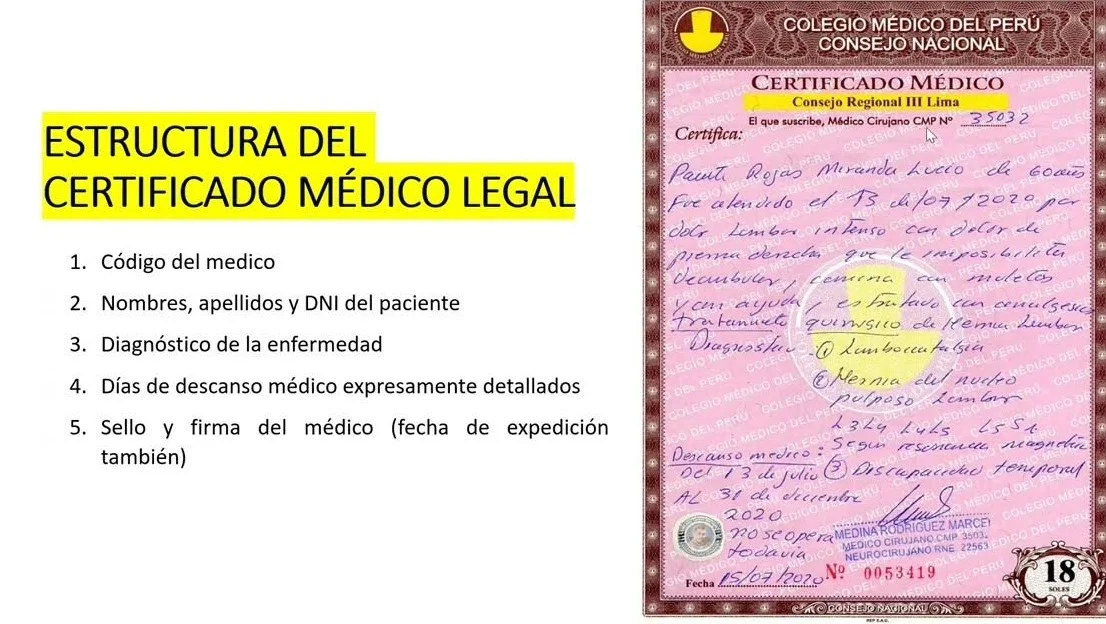 ESTRUCTURA DEL
CERTIFICADO MÉDICO LEGAL
1. Código del medico
2. Nombres, apellidos y DNI del paciente
3. Diagnóstico de la enfermedad
4. Días de descanso médico expresamente detallados
5. Sello y firma del médico (fecha de expedición
también)
COLEGIO MÉDICO DEL PERÚ
CONSEJO NACIONAL
CERTIFICADO MÉDICO
Consejo Regional III Lima
El que suscribe, Médico Cirujano CMP Nº 35032
Certifica:
Rojas Miranda Lucio de 60 años
Fue atendido el 13 de/07/2020 por
dolor Lumbar intenso con dolor de
pierna derecha que le imposibilita
deambular, camina con muletas
y con ayuda, es tratado con
tratamiento quirúrgico de Hernia Lumbar
① Lumbociatalgia
② Hernia del nucleo
pulposo Lumbar
L3L4 L4L5 L5S1
Según resonancia magnética
Descanso médico:
③ Discapacidad temporal
Del 13 de julio
AL 31 de diciembre
2020
no se opera
todavia
MEDINA RODRIGUEZ MARCE
MEDICO CIRUJANO CMP 3503
NEUROCIRUJANO RNE 22563
Fecha 15/07/2020
Nº 0053419
18
SOLES
CONSEJO NACIONAL